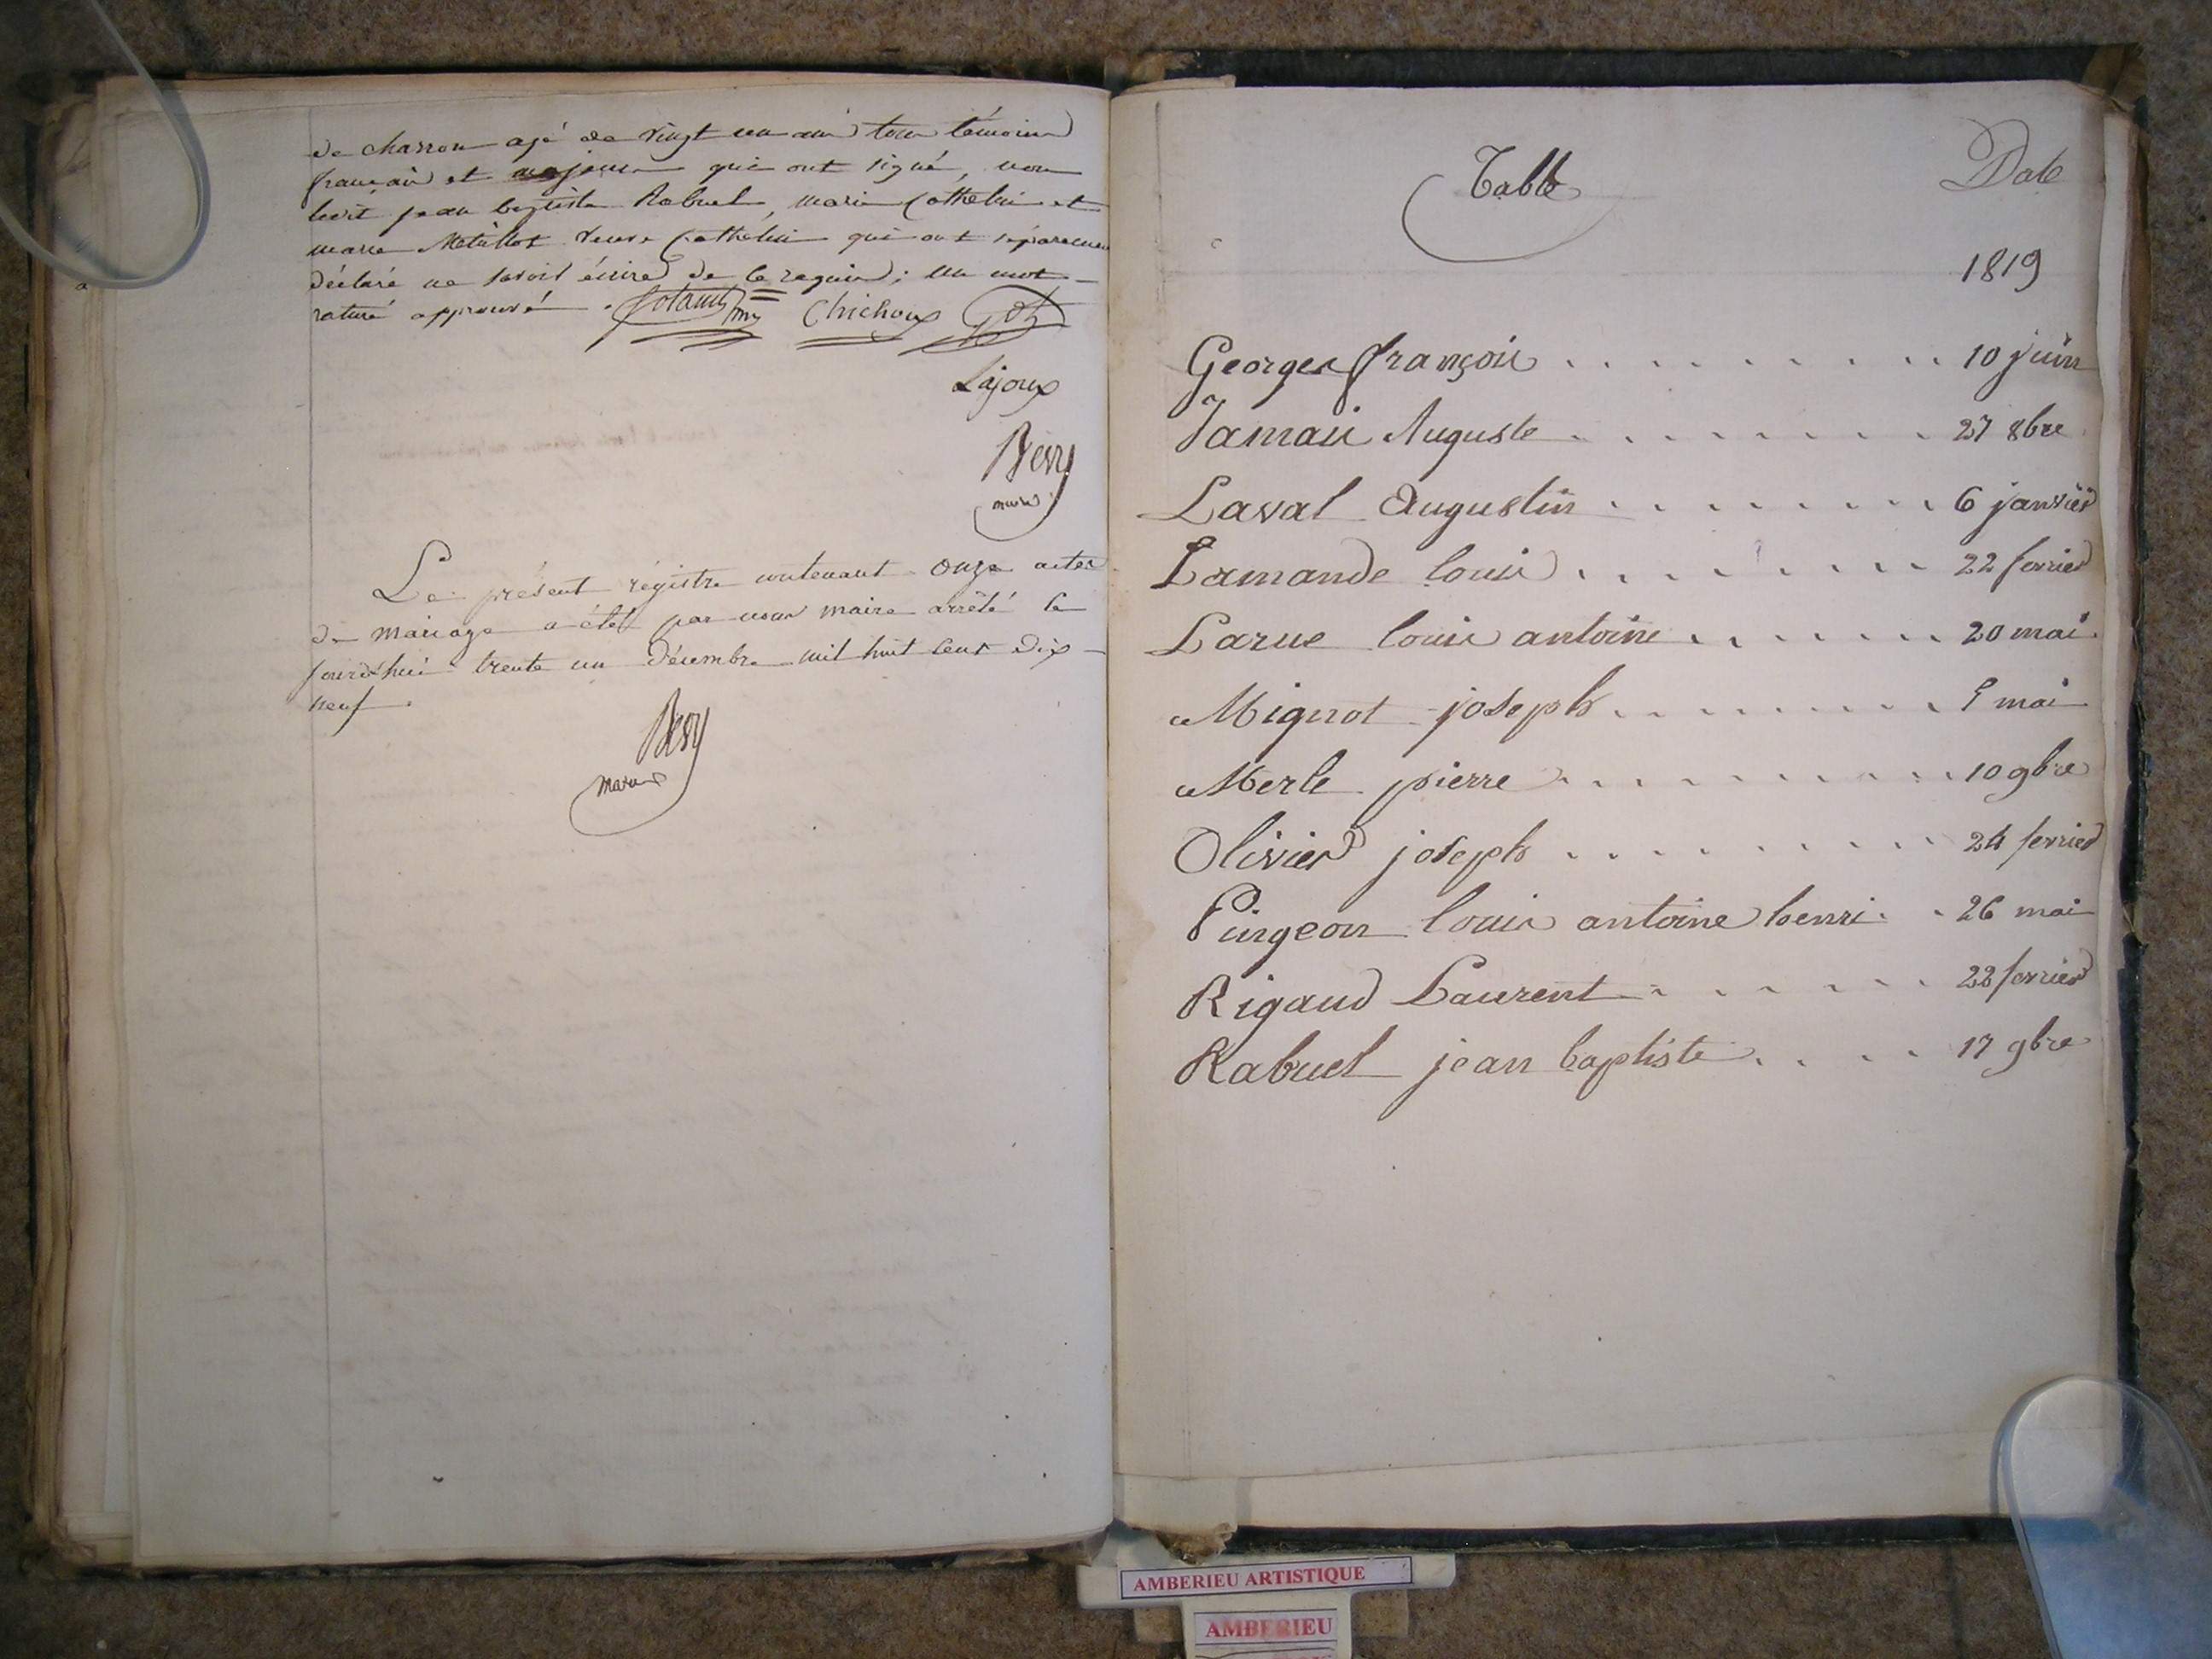 de charron agé de vingt un ans tous témoins
français et majeurs qui ont signé, non
ledit jean baptiste Rabuel, marie Cothelin et
marie veuve Cothelin qui ont séparement
déclaré ne savoir écrire de ce requis; un mot
raturé approuvé. Chichoux
Lajoux
Bévy
maire
Le présent régistre contenant onze actes
de mariage a été par nous maire arrêté ce
jourd'hui trente un décembre mil huit cent dix-
neuf.
Bévy
maire
Table Date
1819
Georges françois 10 juin
Jamais Auguste 27 8bre
Laval Augustin 6 janvier
Lamande louis 22 fevrier
Larue louis antoine 20 mai
Mignot joseph mai
Merle pierre 10 9bre
Olivier joseph 24 fevrier
Pingeon louis antoine henri 26 mai
Rigaud Laurent 22 fevrier
Rabuel jean baptiste 17 9bre
AMBERIEU ARTISTIQUE
AMBERIEU